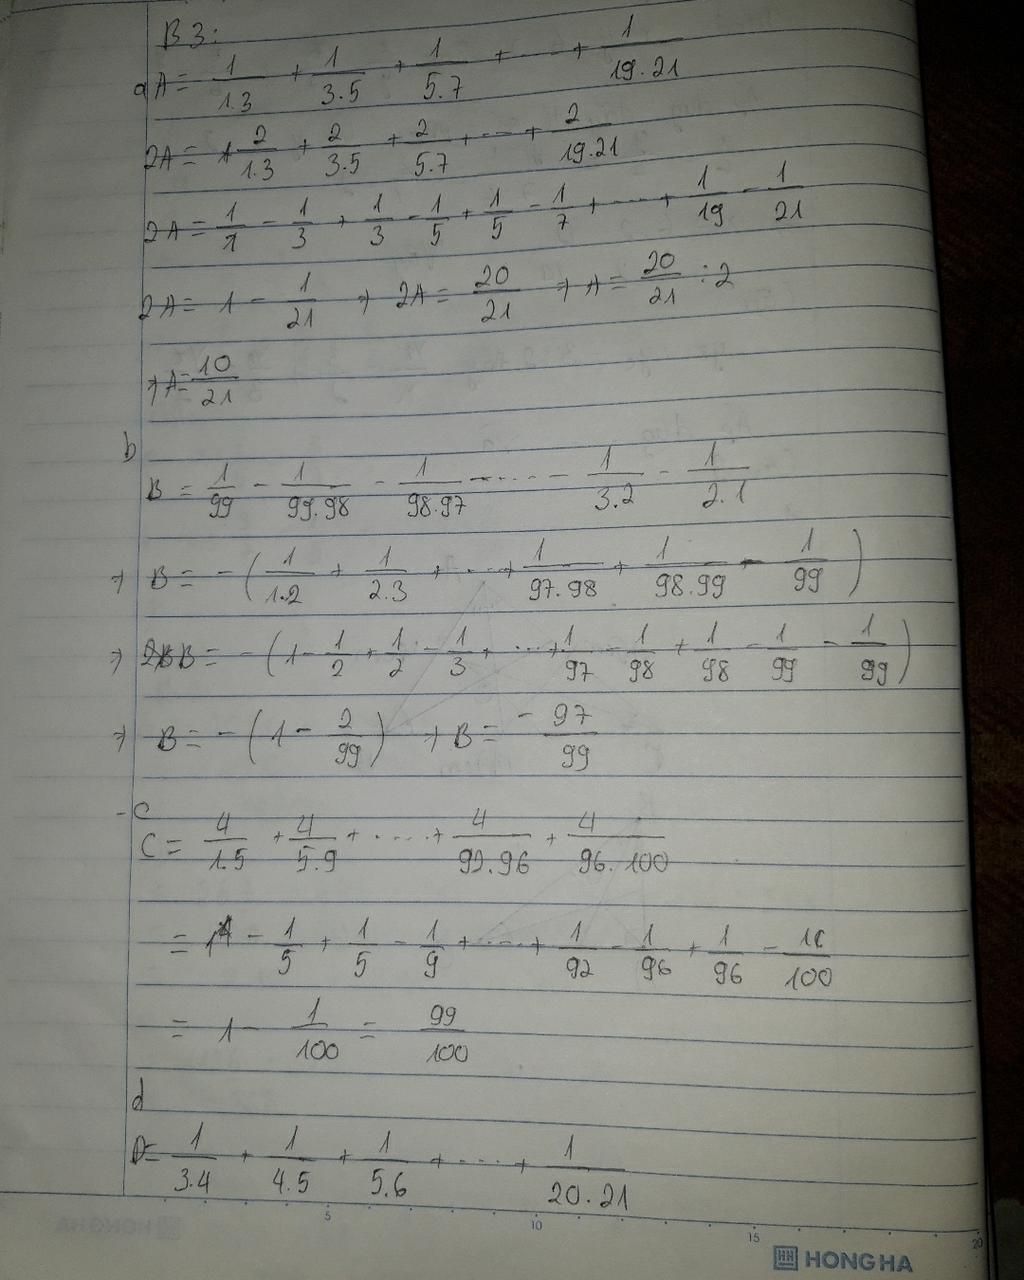 B3:
a A = 1/1.3 + 1/3.5 + 1/5.7 + ... + 1/19.21
2A = 2/1.3 + 2/3.5 + 2/5.7 + ... + 2/19.21
2A = 1/1 - 1/3 + 1/3 - 1/5 + 1/5 - 1/7 + ... + 1/19 - 1/21
2A = 1 - 1/21 → 2A = 20/21 → A = 20/21 : 2
→ A = 10/21
b
B = 1/99 - 1/99.98 - 1/98.97 - ... - 1/3.2 - 1/2.1
→ B = - (1/1.2 + 1/2.3 + ... + 1/97.98 + 1/98.99 - 1/99)
→ B = - (1 - 1/2 + 1/2 - 1/3 + ... + 1/97 - 1/98 + 1/98 - 1/99 - 1/99)
→ B = - (1 - 2/99) → B = - 97/99
c
C = 4/1.5 + 4/5.9 + ... + 4/92.96 + 4/96.100
= 1 - 1/5 + 1/5 - 1/9 + ... + 1/92 - 1/96 + 1/96 - 1/100
= 1 - 1/100 = 99/100
d
D = 1/3.4 + 1/4.5 + 1/5.6 + ... + 1/20.21
5 10 15 20
HONG HA